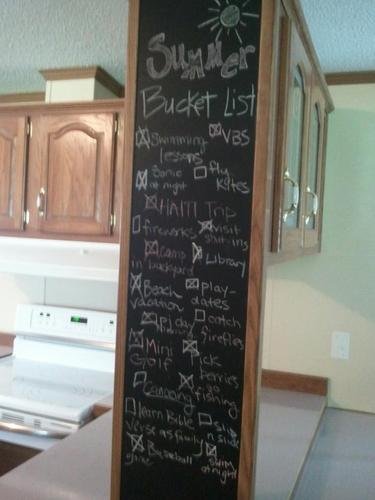 Summer
Bucket List
Swimming VBS
lessons fly
at night kites
HAITI Trip
fireworks visit
Camp Library
in backyard
Beach play-
vacation dates
catch
fireflies
Mini pick
Golf berries
Canoeing go
fishing
learn Bible slip
verse as family n slide
Baseball swim
game at night